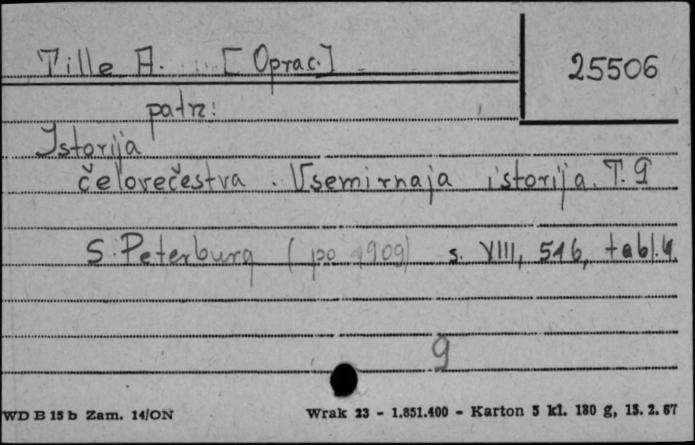 Tille A. [Oprac.]
25506
patrz:
Istorija
čelovečestva. Vsemirnaja istorija. T. 9
S. Peterburg (po 1909) s. VIII, 546, tabl. 4
9
WD B 15 b Zam. 14/ON
Wrak 23 - 1.851.400 - Karton 5 kl. 180 g, 15. 2. 67